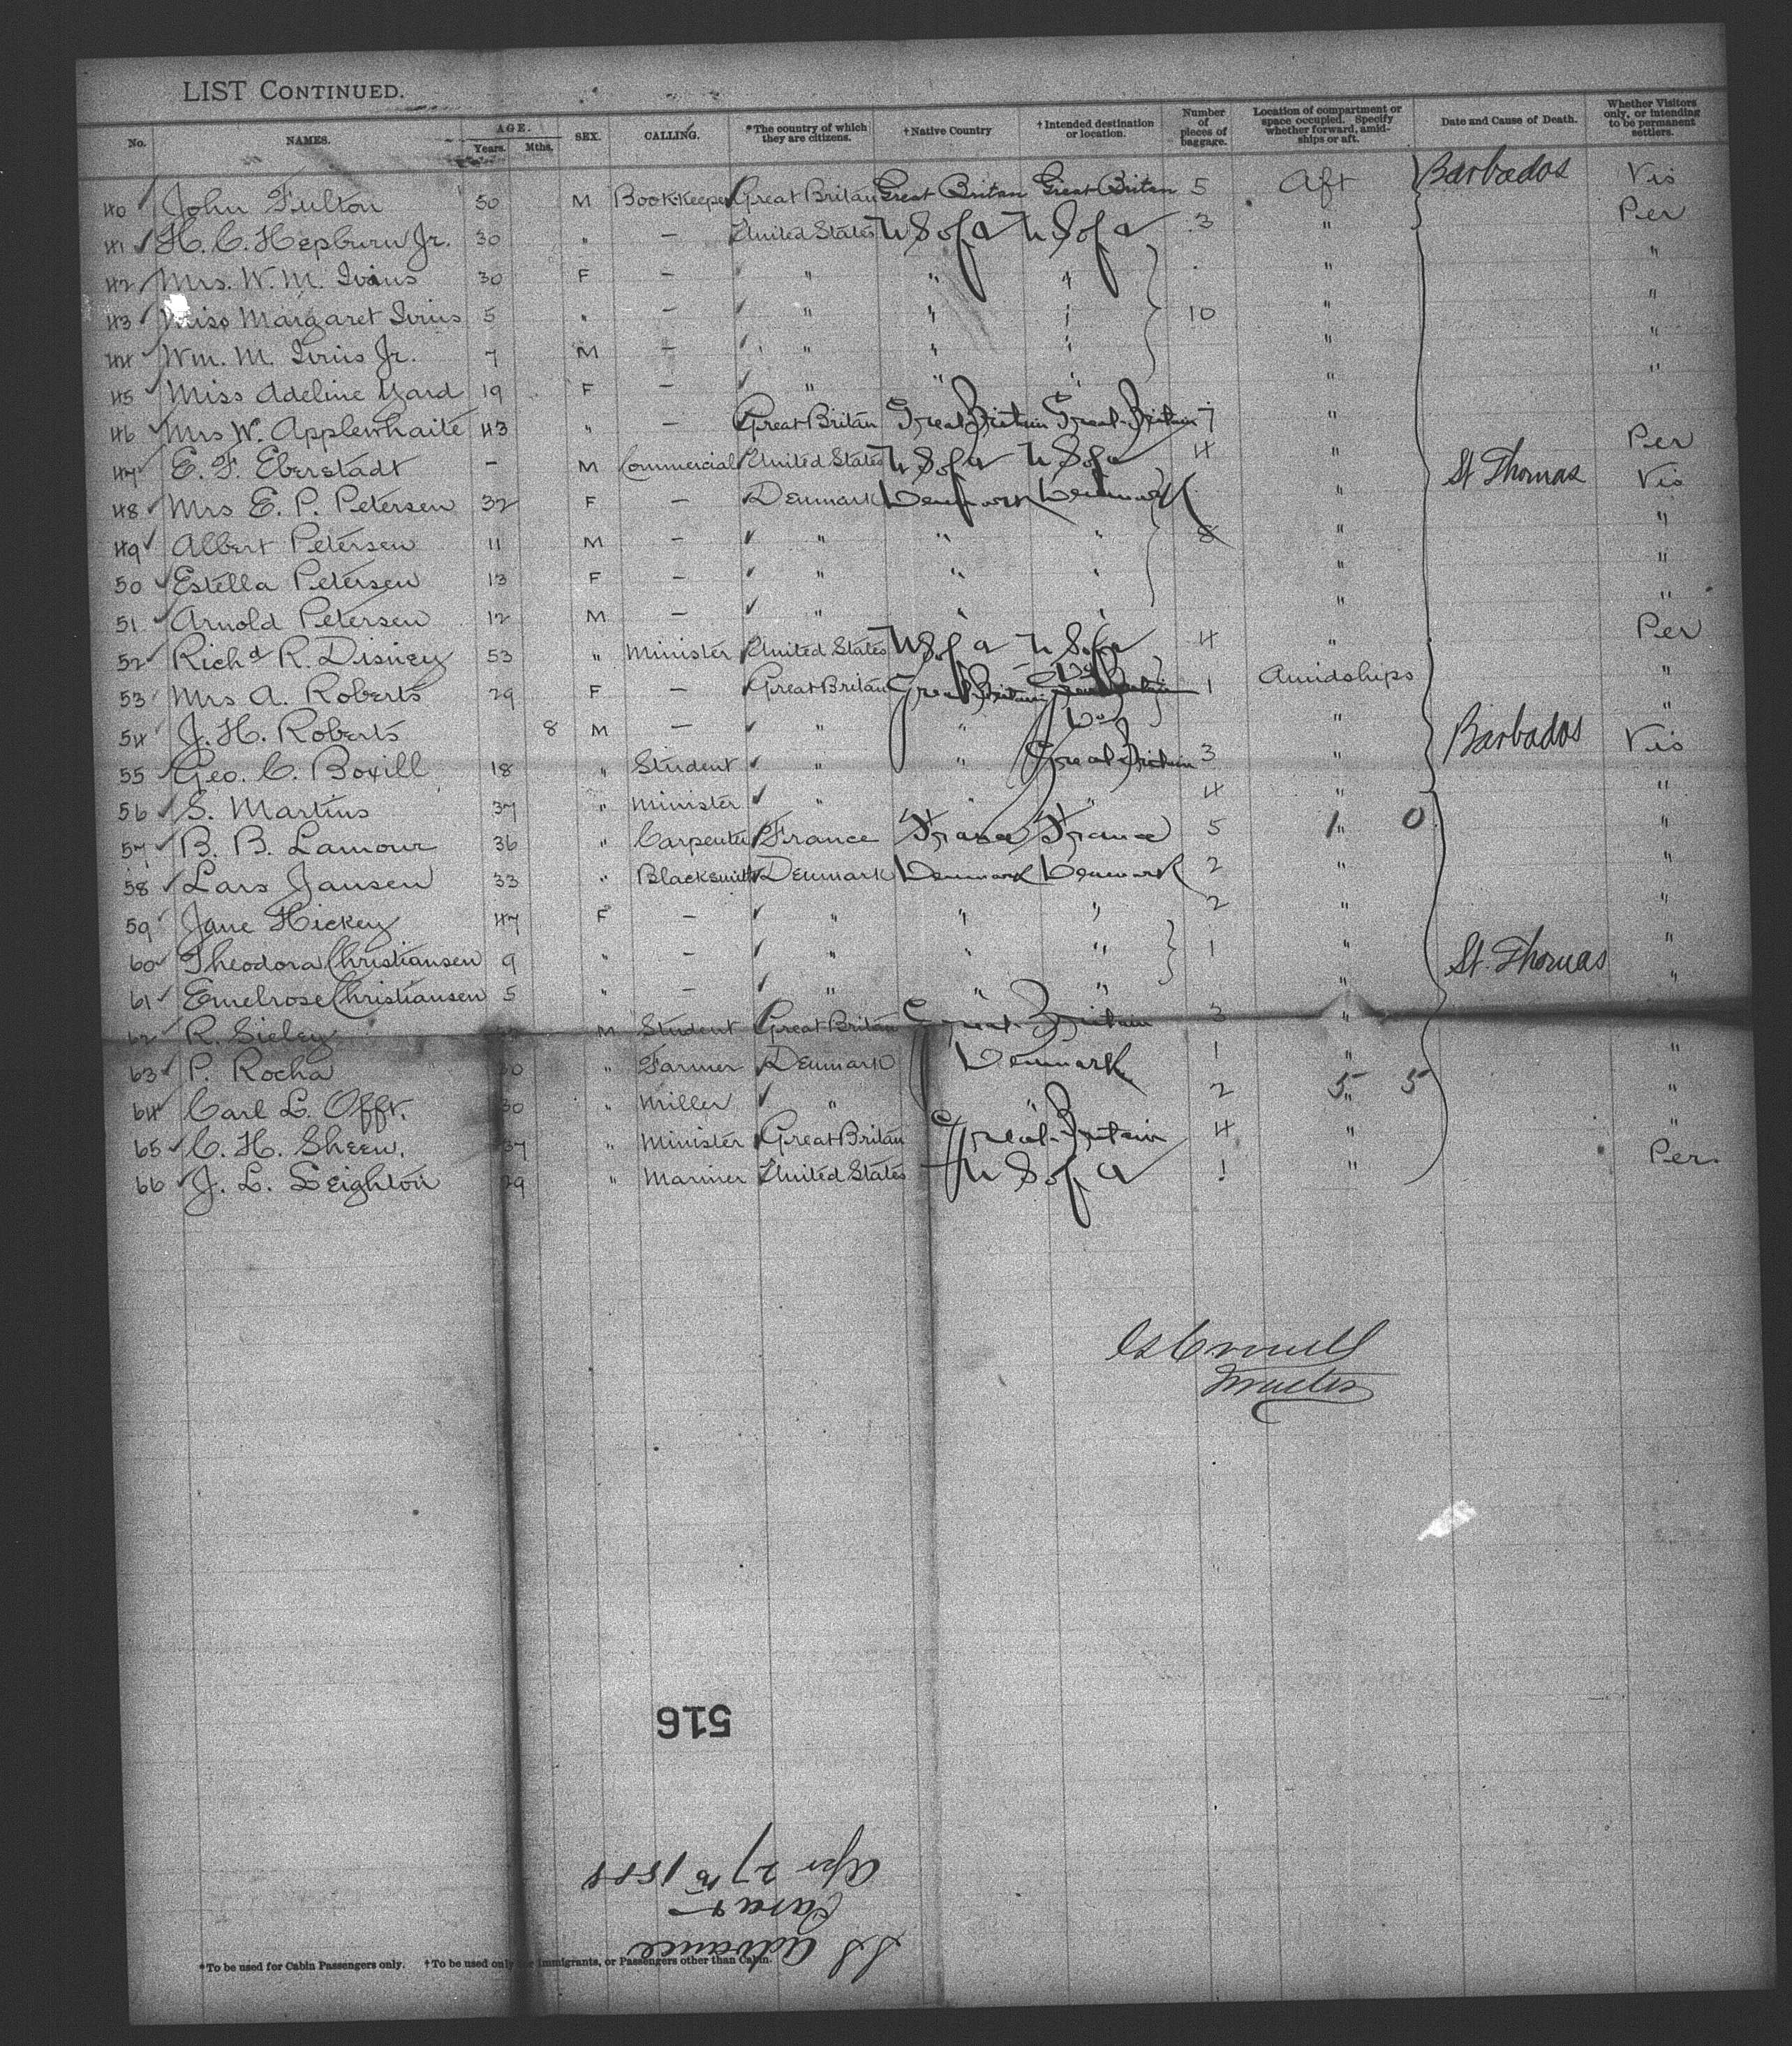 LIST CONTINUED.
No. NAMES. AGE. Years. Mths. SEX. CALLING. *The country of which they are citizens. †Native Country †Intended destination or location. Number of pieces of baggage. Location of compartment or space occupied. Specify whether forward, amidships or aft. Date and Cause of Death. Whether Visitors only, or intending to be permanent settlers.
40 John Fulton 50 M Bookkeeper Great Britan Great Britan Great Britan 5 Aft Barbados Vis
41 H. C. Hepburn Jr. 30 " — United States U S of A U S of A 3 " Per
42 Mrs. W. M. Ivins 30 F — " " " " "
43 Miss Margaret Ivins 5 " — " " " 10 " "
44 Wm. M. Ivins Jr. 7 M — " " " " "
45 Miss Adeline Yard 19 F — " " " " "
46 Mrs W. Applewhaite 43 " — Great Britan Great Britain Great Britain 7 "
47 E. F. Eberstadt – M Commercial United States U S of A U S of A 4 " Per
48 Mrs E. P. Petersen 32 F — Denmark Denmark Denmark " St Thomas Vis
49 Albert Petersen 11 M — " " " 8 " "
50 Estella Petersen 13 F — " " " " "
51 Arnold Petersen 12 M — " " " " "
52 Richd R. Disney 53 " Minister United States U S of A U S of A 4 " Per
53 Mrs A. Roberts 29 F — Great Britan Great Britain 1 Amidships "
54 J. H. Roberts 8 M — " " " "
55 Geo. C. Boxill 18 " Student " " Great Britain 3 " Barbados Vis
56 S. Martins 37 " Minister " " " 4 " "
57 B. B. Lamour 36 " Carpenter France France France 5 1 " 0 "
58 Lars Jansen 33 " Blacksmith Denmark Denmark Denmark 2 " "
59 Jane Hickey 47 F — " " " 2 " "
60 Theodora Christiansen 9 " — " " " 1 " St. Thomas "
61 Emelrose Christiansen 5 " — " " " " "
62 R. Sieley M Student Great Britan Great Britain 3 "
63 P. Rocha 30 " Farmer Denmark Denmark 1 " "
64 Carl L. Offt. 30 " Miller " " 2 5 " 5 "
65 C. H. Sheen. 37 " Minister Great Britan Great Britain 4 " "
66 J. L. Leighton 29 " Mariner United States U S of A 1 " Per.
516
Apr 27th 1888
Para
SS Advance
*To be used for Cabin Passengers only. †To be used only for Immigrants, or Passengers other than Cabin.